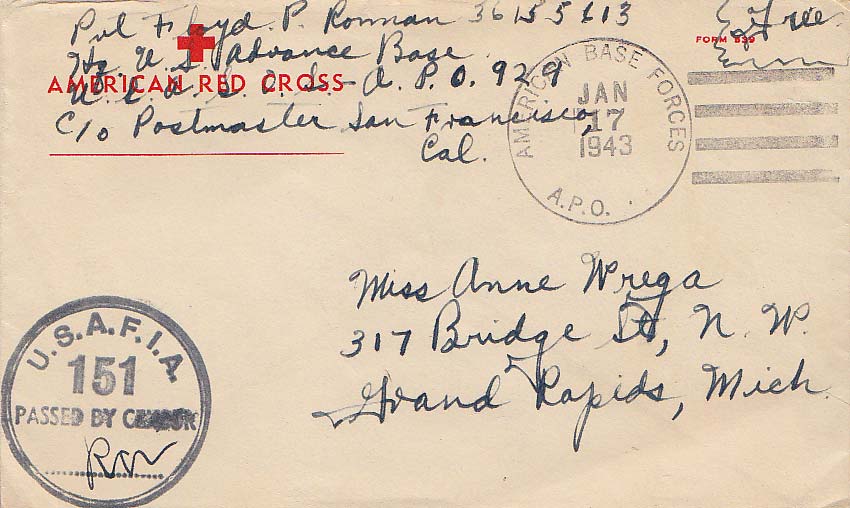 Pvt Floyd. P. Ronnan 36155613
Free
FORM 539
Hq U. S. Advance Base
AMERICAN RED CROSS
U. S. A. S. O. S. - A. P. O. 929
C/o Postmaster San Francisco,
Cal.
AMERICAN BASE FORCES
JAN
17
1943
A.P.O.
Miss Anne Wrega
317 Bridge St, N. W.
Grand Rapids, Mich.
U.S.A.F.I.A.
151
PASSED BY CENSOR